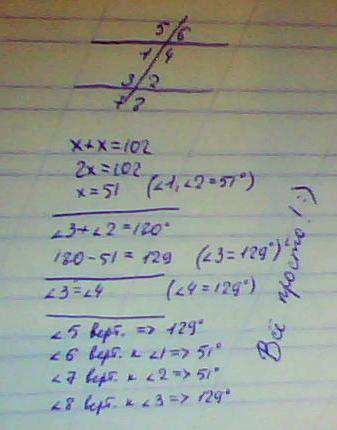 5 6
1 4
3 2
7 8
x+x=102
2x=102
x=51 (∠1,∠2=51°)
∠3+∠2=180°
180-51=129 (∠3=129°)
∠3=∠4 (∠4=129°)
∠5 верт. => 129°
∠6 верт. к ∠1 => 51°
∠7 верт. к ∠2 => 51°
∠8 верт. к ∠3 => 129°
Всё просто! :)